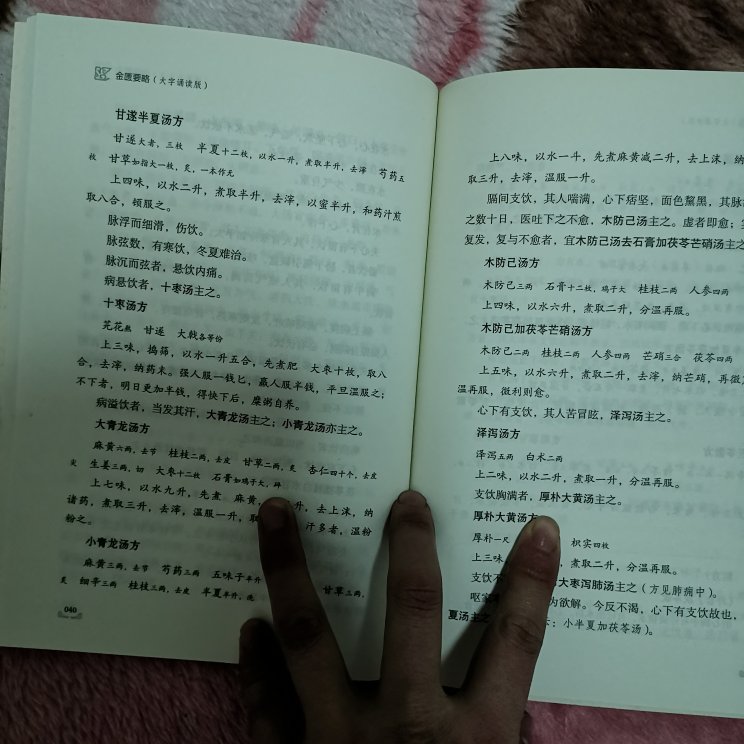 金匮要略(大字诵读版)
甘遂半夏汤方
甘遂大者,三枚 半夏十二枚,以水一升,煮取半升,去滓 芍药五
枚 甘草如指大一枚,炙,一本作无
上四味,以水二升,煮取半升,去滓,以蜜半升,和药汁煎
取八合,顿服之。
脉浮而细滑,伤饮。
脉弦数,有寒饮,冬夏难治。
脉沉而弦者,悬饮内痛。
病悬饮者,十枣汤主之。
十枣汤方
芫花熬 甘遂 大戟各等份
上三味,捣筛,以水一升五合,先煮肥 大枣十枚,取八
合,去滓,纳药末。强人服一钱匕,羸人服半钱,平旦温服之;
不下者,明日更加半钱,得快下后,糜粥自养。
病溢饮者,当发其汗,大青龙汤主之;小青龙汤亦主之。
大青龙汤方
麻黄六两,去节 桂枝二两,去皮 甘草二两,炙 杏仁四十个,去皮
尖 生姜三两,切 大枣十二枚 石膏如鸡子大,碎
上七味,以水九升,先煮 麻黄 升,去上沫,纳
诸药,煮取三升,去滓,温服一升,取 汗多者,温粉
粉之。
小青龙汤方
麻黄三两,去节 芍药三两 五味子半升 甘草三两,
炙 细辛三两 桂枝三两,去皮 半夏半升,洗
040
上八味,以水一斗,先煮麻黄减二升,去上沫,纳
取三升,去滓,温服一升。
膈间支饮,其人喘满,心下痞坚,面色黧黑,其脉
之数十日,医吐下之不愈,木防己汤主之。虚者即愈;
复发,复与不愈者,宜木防己汤去石膏加茯苓芒硝汤主之
木防己汤方
木防己三两 石膏十二枚,鸡子大 桂枝二两 人参四两
上四味,以水六升,煮取二升,分温再服。
木防己加茯苓芒硝汤方
木防己二两 桂枝二两 人参四两 芒硝三合 茯苓四两
上五味,以水六升,煮取二升,去滓,纳芒硝,再微
温再服,微利则愈。
心下有支饮,其人苦冒眩,泽泻汤主之。
泽泻汤方
泽泻五两 白术二两
上二味,以水二升,煮取一升,分温再服。
支饮胸满者,厚朴大黄汤主之。
厚朴大黄汤方
厚朴一尺 枳实四枚
上三味 煮取二升,分温再服。
支饮不 大枣泻肺汤主之(方见肺痈中)。
呕家 为欲解。今反不渴,心下有支饮故也,
夏汤主之 ;小半夏加茯苓汤)。